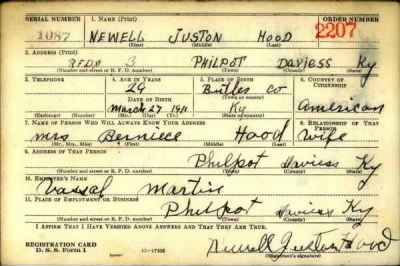 SERIAL NUMBER 1. NAME (Print) ORDER NUMBER
1087 NEWELL JUSTON HOOD 2207
(First) (Middle) (Last)
2. ADDRESS (Print)
RFD# 3 PHILPOT DAVIESS Ky
(Number and street or R. F. D. number) (Town) (County) (State)
3. TELEPHONE 4. AGE IN YEARS 5. PLACE OF BIRTH 6. COUNTRY OF CITIZENSHIP
29 Butler Co
DATE OF BIRTH (Town or county)
March 27 1911 Ky American
(Exchange) (Number) (Mo.) (Day) (Yr.) (State or country)
7. NAME OF PERSON WHO WILL ALWAYS KNOW YOUR ADDRESS 8. RELATIONSHIP OF THAT PERSON
Mrs Berniece Hood wife
(Mr., Mrs., Miss) (First) (Middle) (Last)
9. ADDRESS OF THAT PERSON
Philpot Daviess Ky
(Number and street or R. F. D. number) (Town) (County) (State)
10. EMPLOYER'S NAME
Martin
11. PLACE OF EMPLOYMENT OR BUSINESS
Philpot Daviess Ky
(Number and street or R. F. D. number) (Town) (County) (State)
I AFFIRM THAT I HAVE VERIFIED ABOVE ANSWERS AND THAT THEY ARE TRUE.
REGISTRATION CARD
D. S. S. Form 1 Newell Juston Hood
(over) (Registrant's signature)